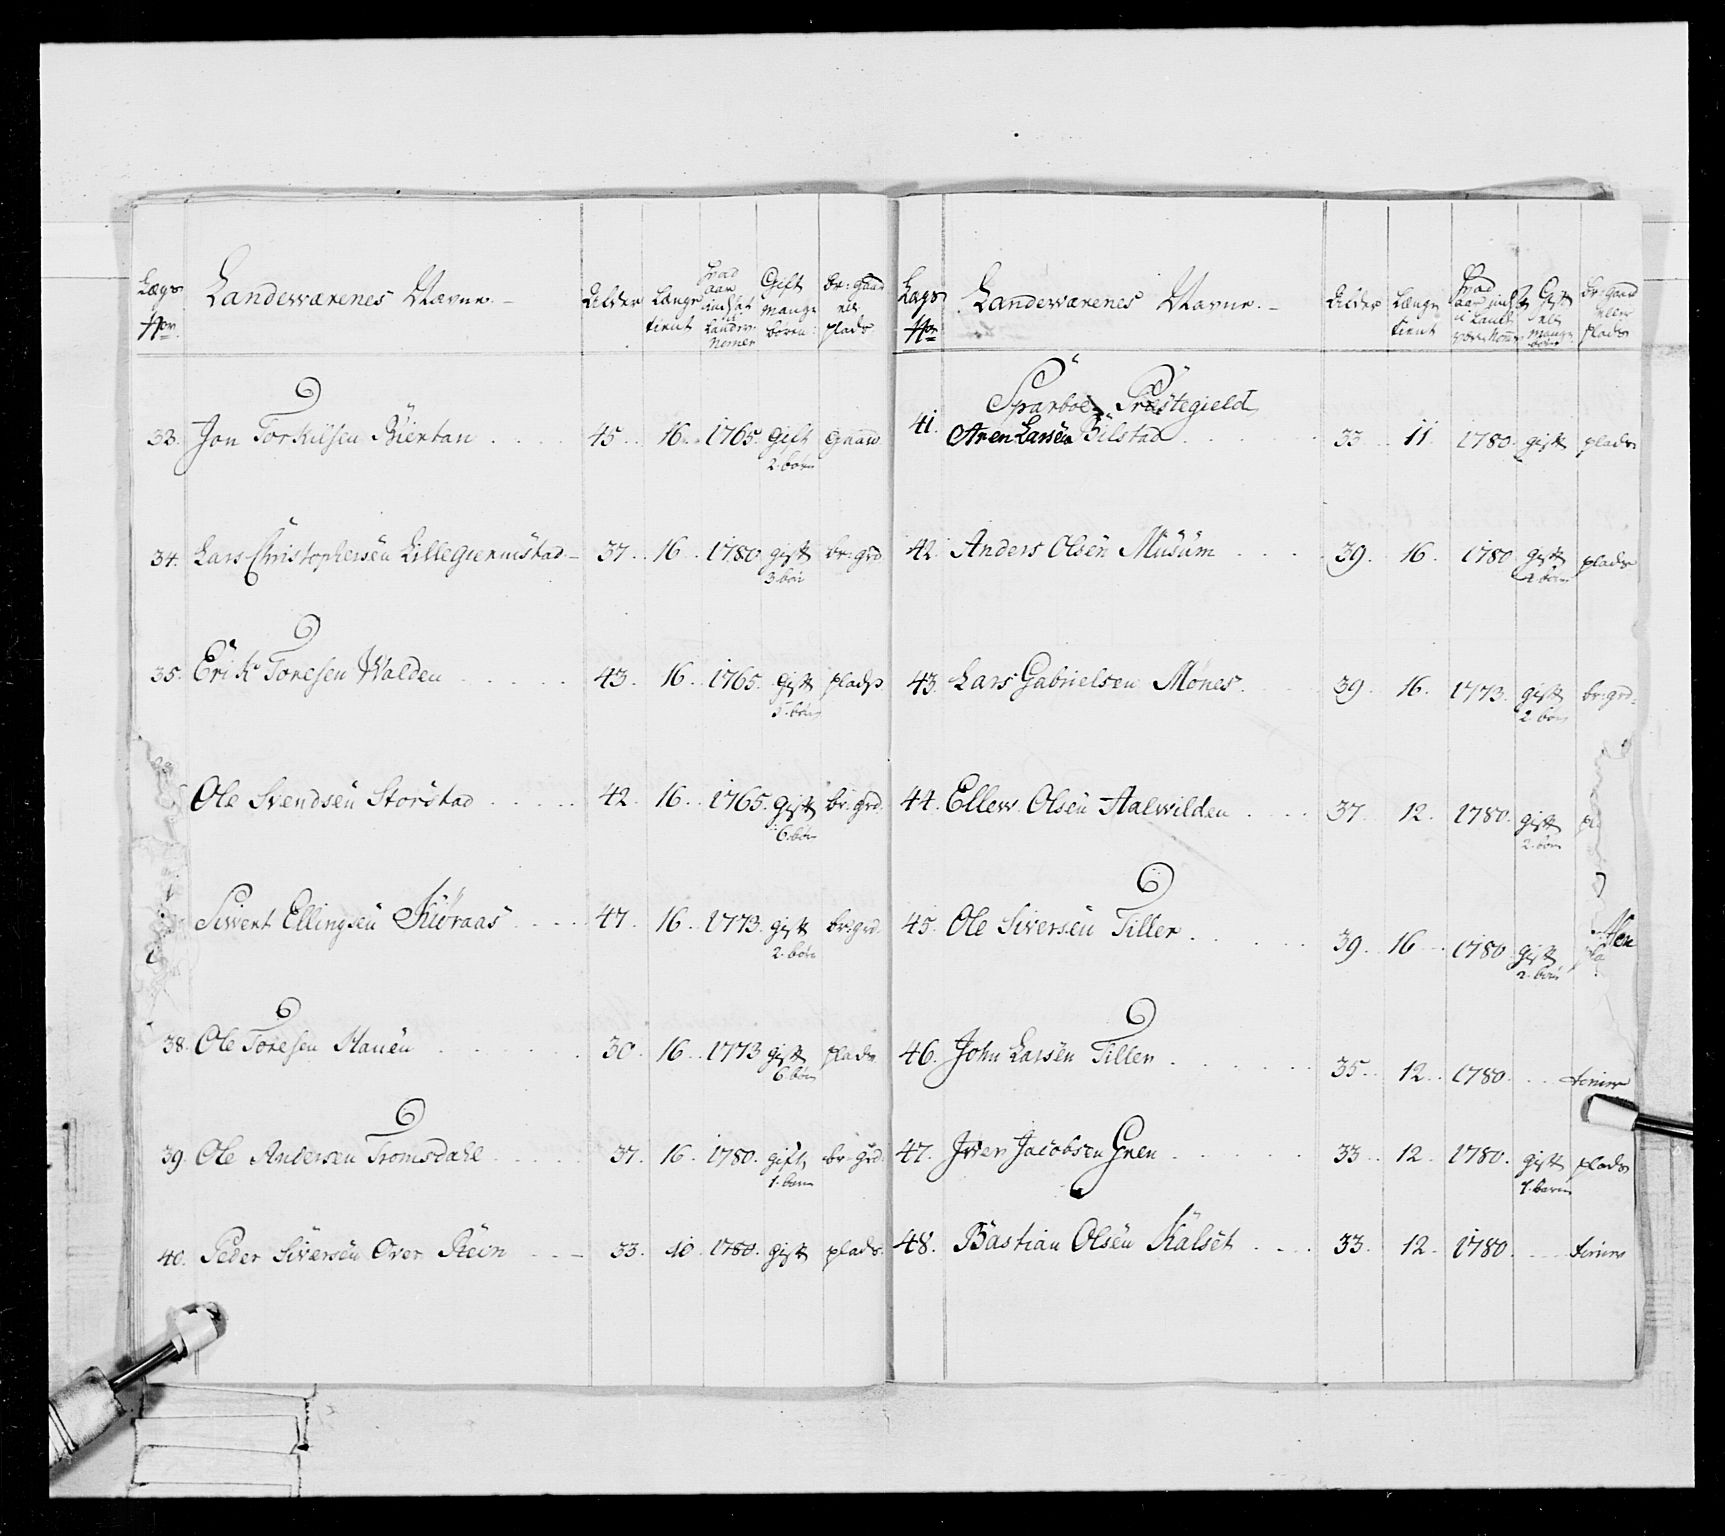 Lægs No. Landewærenes Navne.- Alder Længe tient hvad aar indsat i Landw: Nomer Gift mange børen: br: Gaard ell. plads
33. Jon Torkilsen Biertan .... 45. 16. 1765. Gift Gaard
2. børn
34. Lars Christophersen Lillegiermstad- 37. 16. 1780. gift br: grd
3. børn
35. Erik Toresen Walden ..... 43. 16. 1765. Gift plads
5. børn
Ole Svendsen Storstad ..... 42. 16. 1765. Gift br: grd.
6. børn
Sivert Ellingsen Kiøraas .... 47. 16. 1773. gift br: grd.
2. børn
38. Ole Toresen Mauen ...... 30. 16. 1773 gift plads
6. børn
39. Ole Andersen Tromsdahl ..... 37. 16. 1780. gift br: grd
1. barn
40. Peder Siversen Over Rein ... 33. 10 1780. gift plads.
Lægs No. Landewærenes Navne.- Alder Længe tient hvad aar inds: i Land: være Nom: Gift ell: mange børn br: gaard eller plads
Sparboe Præstegield
41. Aren Larsen Bilstad ...... 33 11. 1780. gift plads
42. Anders Olsen Musum .... 39. 16. 1780 gift plads
2 børn
43. Lars Gabrielsen Mønes. 39. 16. 1773. gift br: grd.
2. børn
44. Ellew. Olsen Aalwilden .... 37. 12. 1780. gift
2. børn
45. Ole Siversen Tiller ...... 39. 16 1780 gift
2. børn
46. John Larsen Tiller ....... 35. 12. 1780. ...
47. Iver Jacobsen Gren ...... 33. 12. 1780. gift plads
1. barn
48. Bastian Olsen Kalset .... 33. 12. 1780. ...